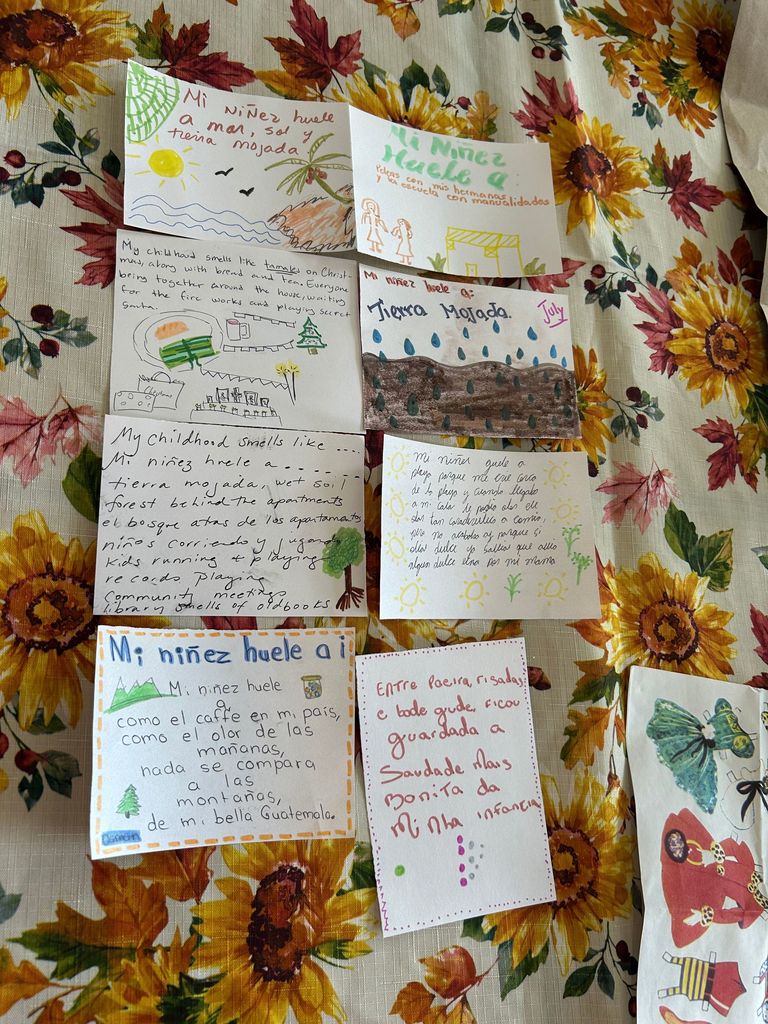 Mi Niñez huele
a mar, sol y
tierra mojada.
Mi Niñez
Huele a
con mis hermanas
y la escuela con manualidades
My childhood smells like the tamales on Christ-
mas, along with bread and tea. Everyone
being together around the house, waiting
for the fire works and playing secret
santa.
Mi niñez huele a:
Tierra Mojada.
July
My childhood smells like ....
Mi niñez huele a ......
tierra mojada, wet soil
forest behind the apartments
el bosque atras de los apartamentos
niños corriendo y jugando
kids running + playing
records playing
community meetings
library smells of old books
mi niñez guele a
playa porque me crie cerca
de la playa y cuando llegaba
a mi casa de
olor dulce yo sabia que
algun dulce mi mama
Mi niñez huele a
Mi niñez huele
a
como el caffe en mi pais,
como el olor de las
mañanas,
nada se compara
a las
montañas,
de mi bella Guatemala.
Entre Poeira, risadas
e bole gude, ficou
guardada a
Saudade Mais
Bonita da
Minha infancia